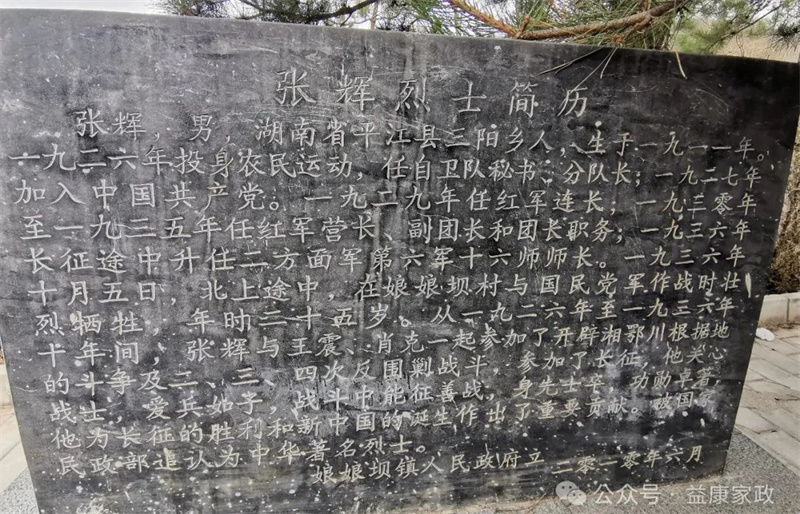 张辉烈士简历
张辉，男，湖南省平江县三阳乡人，生于一九一一年。
一九二六年投身农民运动，任自卫队秘书、分队长；一九二七年
加入中国共产党。一九二九年任红军连长；一九三零年
至一九三五年任红军营长、副团长和团长职务；一九三六年
长征途中升任二方面军第六军十六师师长。一九三六年
十月五日，北上途中，在娘娘坝村与国民党军作战时壮
烈牺牲，年时二十五岁。从一九二六年至一九三六年
十年间，张辉与王震、肖克一起参加了开辟湘鄂川根据地
的斗争，及二、三、四次反围剿战斗，参加了长征，他关心
战士，爱兵如子，战斗中能征善战，身先士卒，功勋卓著，
他为长征的胜利和新中国的诞生作出了重要贡献。被国家
民政部追认为中华著名烈士。
娘娘坝镇人民政府立 二零一零年六月
公众号·益康家政